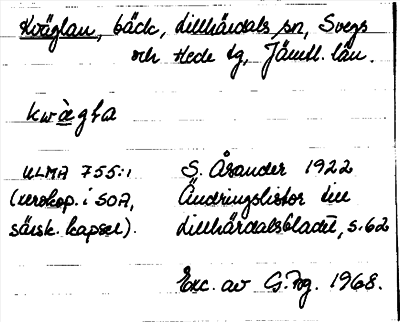 Kväglan, bäck, Lillhärdals sn, Svegs
och Hede tg, Jämtl. län.
kwàgla
ULMA 755:1 S. Åsander 1922
(xerokop. i SOA, Ändringslistor till
särsk. kapsel). Lillhärdalsbladet, s. 62
Exc. av G. Hg. 1968.